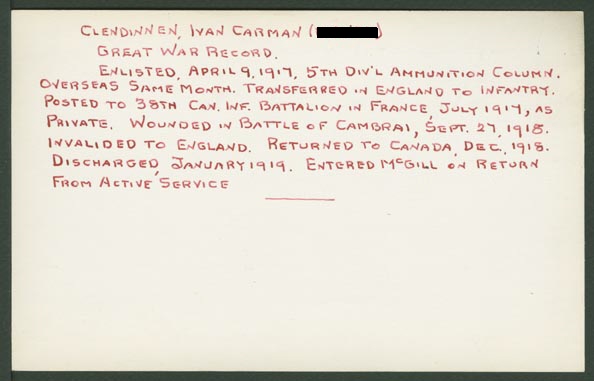 CLENDINNEN, IVAN CARMAN ( )
GREAT WAR RECORD.
ENLISTED, APRIL 9, 1917, 5TH DIV'L AMMUNITION COLUMN.
OVERSEAS SAME MONTH. TRANSFERRED IN ENGLAND TO INFANTRY.
POSTED TO 38TH CAN. INF. BATTALION IN FRANCE, JULY 1917, AS
PRIVATE. WOUNDED IN BATTLE OF CAMBRAI, SEPT. 27, 1918.
INVALIDED TO ENGLAND. RETURNED TO CANADA, DEC. 1918.
DISCHARGED, JANUARY 1919. ENTERED MCGILL ON RETURN
FROM ACTIVE SERVICE